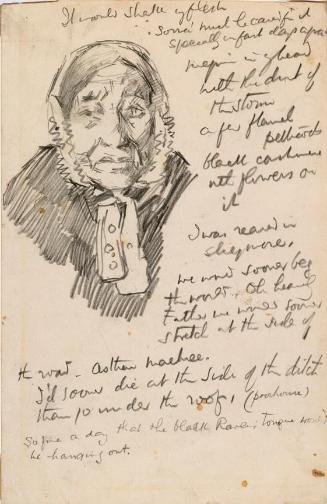 It would shake yr flesh
Soná must be careful
specially in
in yr head
with the dint of
the storm
a few flannel
petticoats
black cashmere
with flowers on
it
I was reared in
we would sooner beg
the world. Oh heavenly
Father we would sooner
stretch at the side of
the road. Asthore machree.
I'd sooner die at the side of the ditch
than go under the roof, (poorhouse)
So fine a day that the black Raven's tongue would
be hanging out.